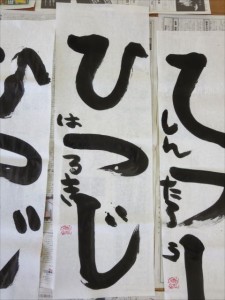 ひつじ
はるき
ひつじ
しんたろう
ひつじ